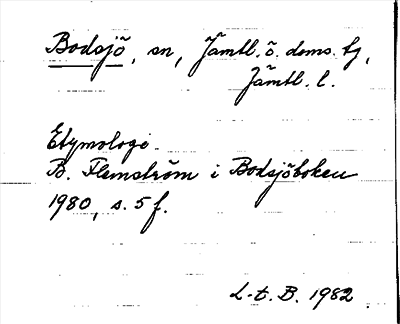 Bodsjö, sn, Jämtl. ö. doms. tj,
Jämtl. l.
Etymologi.
B. Flemström i Bodsjöboken
1980, s. 5 f.
L-t. B. 1982